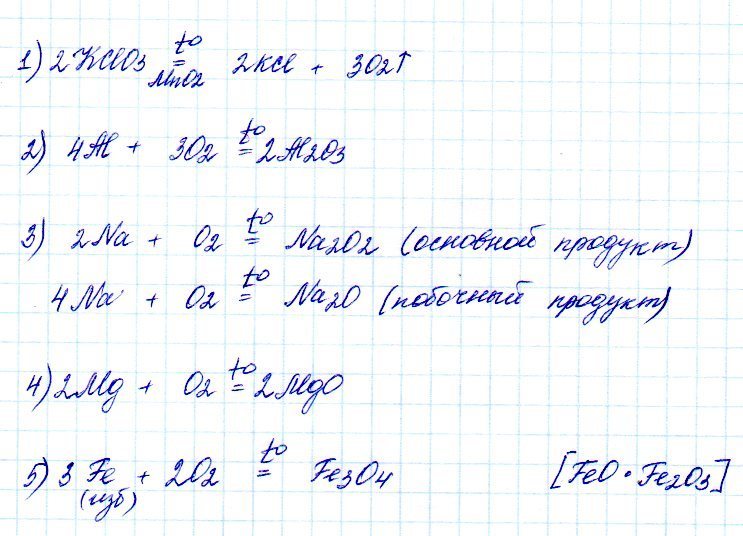 1) 2KClO3 t° = MnO2 2KCl + 3O2↑
2) 4Al + 3O2 t° = 2Al2O3
3) 2Na + O2 t° = Na2O2 (основной продукт)
4Na + O2 t° = Na2O (побочный продукт)
4) 2Mg + O2 t° = 2MgO
5) 3Fe + 2O2 t° = Fe3O4 [FeO · Fe2O3]
(изб)